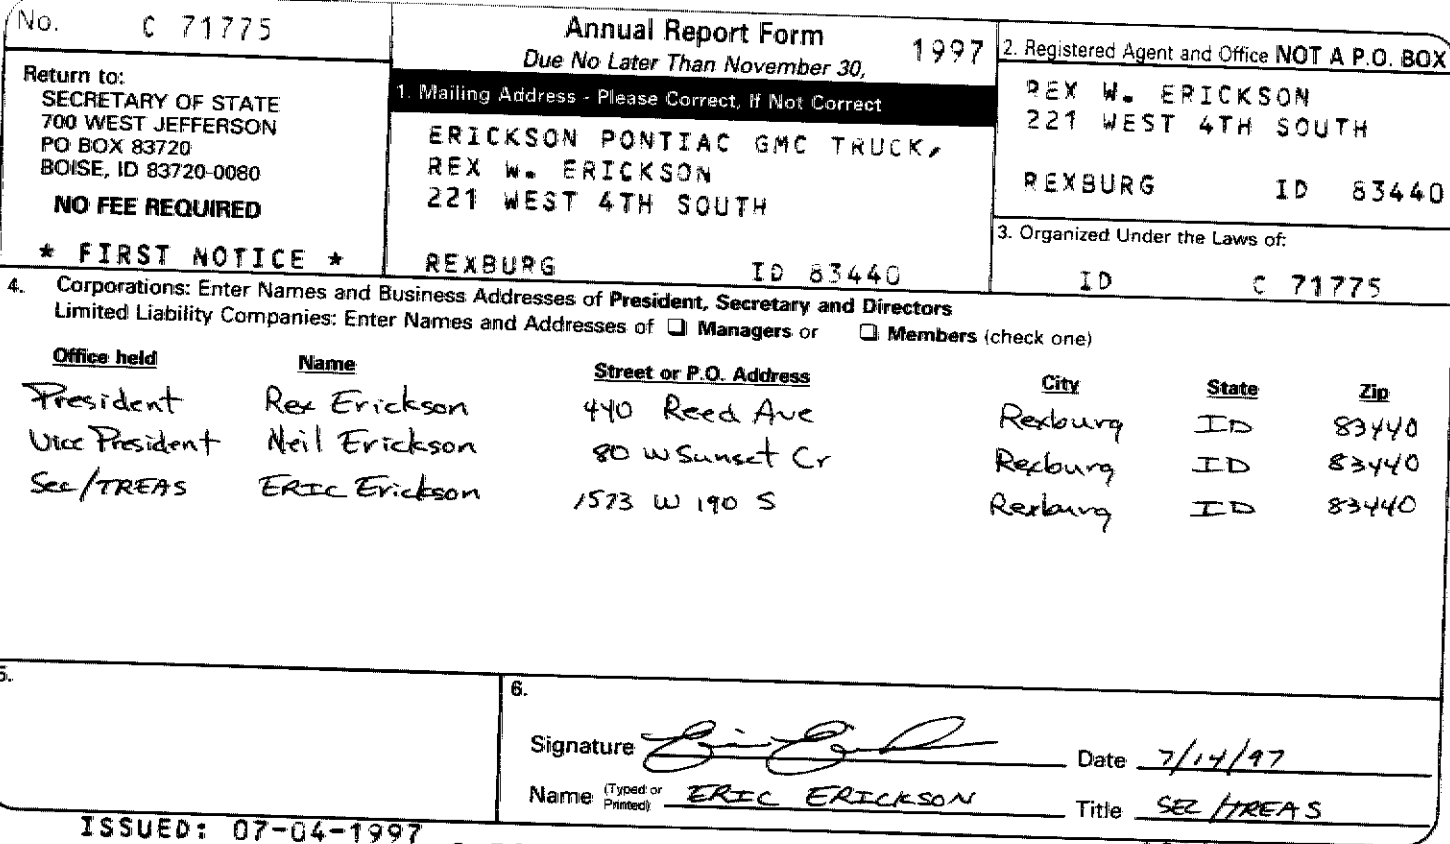 No. C 71775
Return to:
SECRETARY OF STATE
700 WEST JEFFERSON
PO BOX 83720
BOISE, ID 83720-0080
NO FEE REQUIRED
* FIRST NOTICE *
Annual Report Form
1997
Due No Later Than November 30,
1. Mailing Address - Please Correct, If Not Correct
ERICKSON PONTIAC GMC TRUCK,
REX W. ERICKSON
221 WEST 4TH SOUTH
REXBURG ID 83440
2. Registered Agent and Office NOT A P.O. BOX
REX W. ERICKSON
221 WEST 4TH SOUTH
REXBURG ID 83440
3. Organized Under the Laws of:
ID C 71775
4. Corporations: Enter Names and Business Addresses of President, Secretary and Directors
Limited Liability Companies: Enter Names and Addresses of ❑ Managers or ❑ Members (check one)
Office held Name Street or P.O. Address City State Zip
President Rex Erickson 440 Reed Ave Rexburg ID 83440
Vice President Neil Erickson 80 W Sunset Cr Rexburg ID 83440
Sec/TREAS ERIC Erickson 1573 W 190 S Rexburg ID 83440
5.
6.
Signature Date 7/14/97
Name (Typed or Printed) ERIC ERICKSON Title SEC/TREAS
ISSUED: 07-04-1997